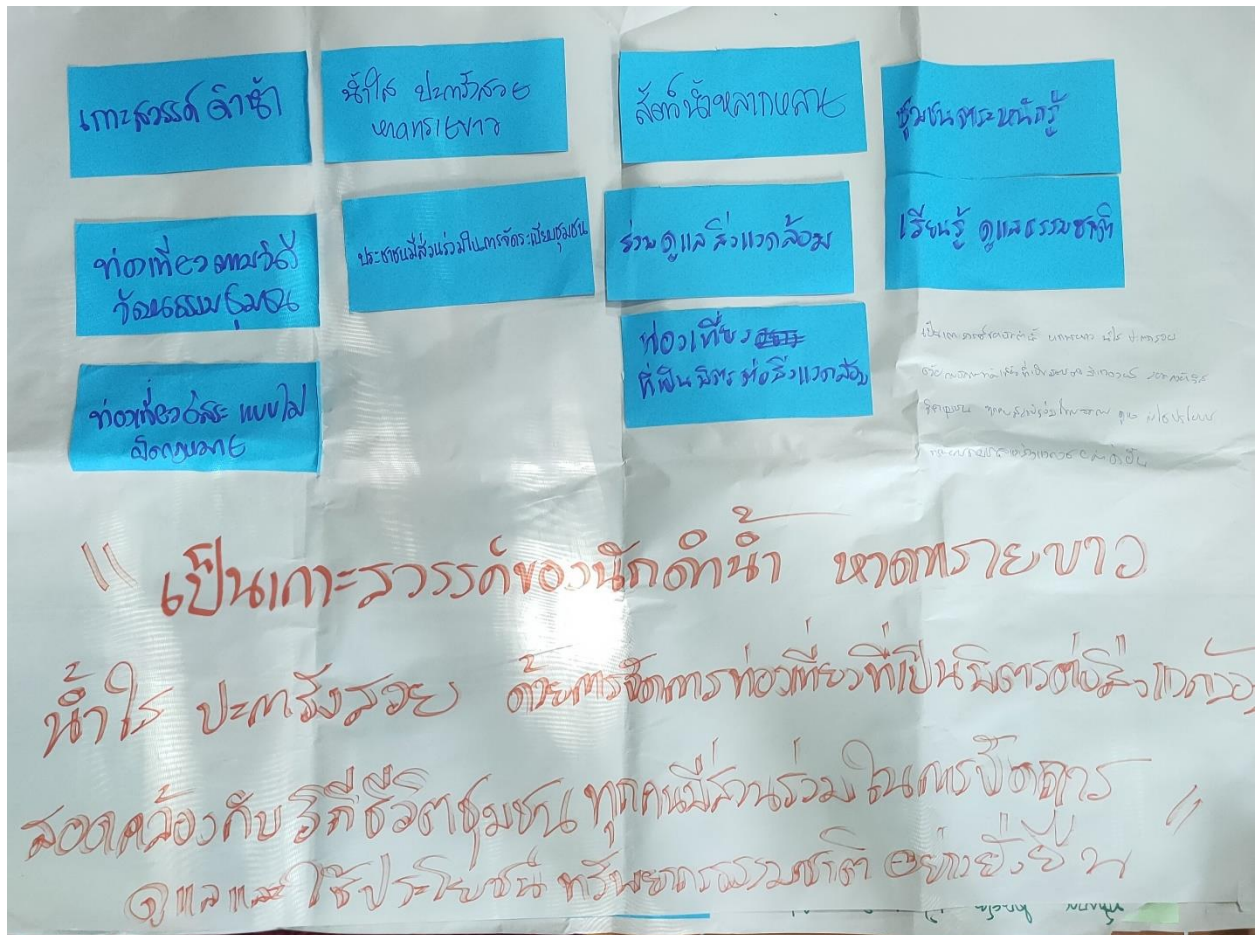 เกาะสวรรค์ดำน้ำ
น้ำใส ปะการังสวย
หาดทรายขาว
สัตว์น้ำหลากหลาย
ชุมชนตระหนักรู้
ท่องเที่ยวตามวิถี
วัฒนธรรมชุมชน
ประชาชนมีส่วนร่วมในการจัดระเบียบชุมชน
ร่วมดูแลสิ่งแวดล้อม
เรียนรู้ ดูแลธรรมชาติ
ท่องเที่ยวอิสระ แบบไม่
ผิดกฎหมาย
ท่องเที่ยว
ที่เป็นมิตรต่อสิ่งแวดล้อม
"เป็นเกาะสวรรค์ของนักดำน้ำ หาดทรายขาว
น้ำใส ปะการังสวย ด้วยการจัดการท่องเที่ยวที่เป็นมิตรต่อสิ่งแวดล้อม
สอดคล้องกับวิถีชีวิตชุมชน ทุกคนมีส่วนร่วมในการจัดการ
ดูแลและใช้ประโยชน์ทรัพยากรธรรมชาติ อย่างยั่งยืน"